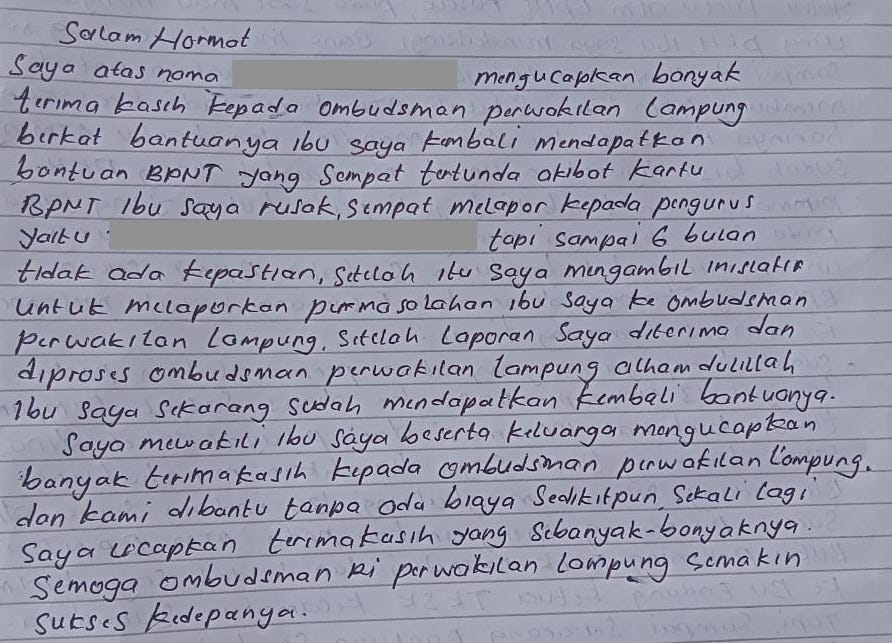 Salam Hormat
Saya atas nama mengucapkan banyak
terima kasih kepada ombudsman perwakilan Lampung
berkat bantuanya ibu saya kembali mendapatkan
bantuan BPNT yang sempat tertunda akibat kartu
BPNT ibu saya rusak, sempat melapor kepada pengurus
yaitu : tapi sampai 6 bulan
tidak ada kepastian, setelah itu saya mengambil inisiatif
untuk melaporkan permasalahan ibu saya ke ombudsman
perwakilan Lampung. setelah laporan saya diterima dan
diproses ombudsman perwakilan lampung alhamdulillah
ibu saya sekarang sudah mendapatkan kembali bantuanya.
Saya mewakili ibu saya beserta keluarga mengucapkan
banyak terimakasih kepada ombudsman perwakilan Lampung.
dan kami dibantu tanpa ada biaya sedikitpun. sekali lagi
saya ucapkan terimakasih yang sebanyak-banyaknya.
Semoga ombudsman RI perwakilan lampung semakin
sukses kedepanya.